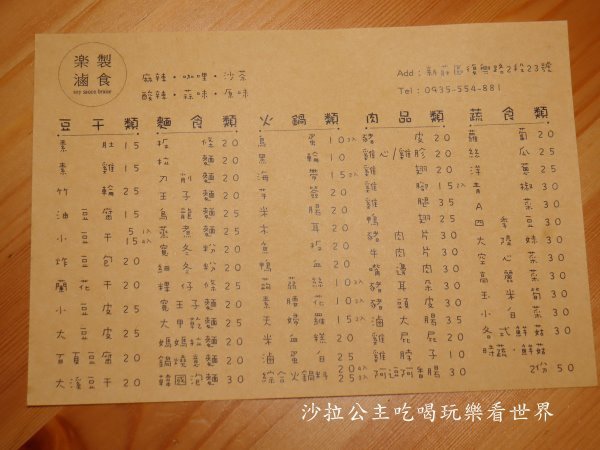 楽製
滷食
soy sauce braise
麻辣・咖哩・沙茶
酸辣・蒜味・原味
Add：新莊區復興路2段23號
Tel：0935-554-881
豆干類 麵食類 火鍋類 肉品類 蔬食類
素肚 15
素雞 15
竹輪 25
油豆腐 15
小豆干 5入 15入
炸豆包 20
蘭花干 20
小豆皮 25
大豆皮 25
百頁豆腐 20
大溪豆干 20
板條 20
拉麵 20
刀削麵 20
王子麵 20
烏龍麵 25
蒸煮麵 25
寬冬粉 30
細冬粉 20
粿仔條 20
王子麵
寬
大甲麵 25
媽媽乾麵 25
鍋燒意麵 20
韓國泡麵 30
鳥蛋 10
黑輪 10
海帶 15
芋籤
米腸
木耳 20
魚板 20
鴨血 20
蒟蒻絲 10入
素腰花 10入
天婦羅 15入
米血糕 20
滷蛋 20
綜合火鍋料 25
豬皮 20
雞心/雞胗 20
雞翅 20
雞腳 15入
雞腿 35
鴨翅 25
豬肉片
牛肉片 40
嘴邊肉
豬耳朵 30
豬頭皮 30
滷大腸 35
雞屁股 10
雞脖子 30
阿這阿魯腸 30
蘿蔔 20
絲瓜 25
洋蔥
青椒 30
A菜 30
四季豆 30
大陸妹 30
空心菜 30
高麗菜 30
玉米筍 30
小白菜 30
各式鮮菇 30
時蔬．鮮菇
2份50
沙拉公主吃喝玩樂看世界